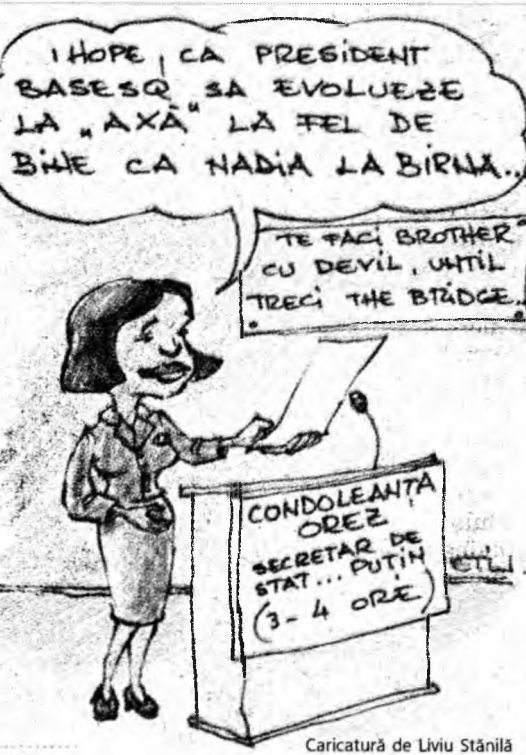 I HOPE, CA PRESIDENT
BASESQ SA EVOLUEZE
LA „AXĂ" LA FEL DE
BINE CA NADIA LA BIRNA..
TE FACI BROTHER
CU DEVIL, UNTIL
TRECI THE BRIDGE.
CONDOLEANȚA
OREZ
SECRETAR DE
STAT... PUȚIN
(3-4 ORE)
Caricatură de Liviu Stănilă